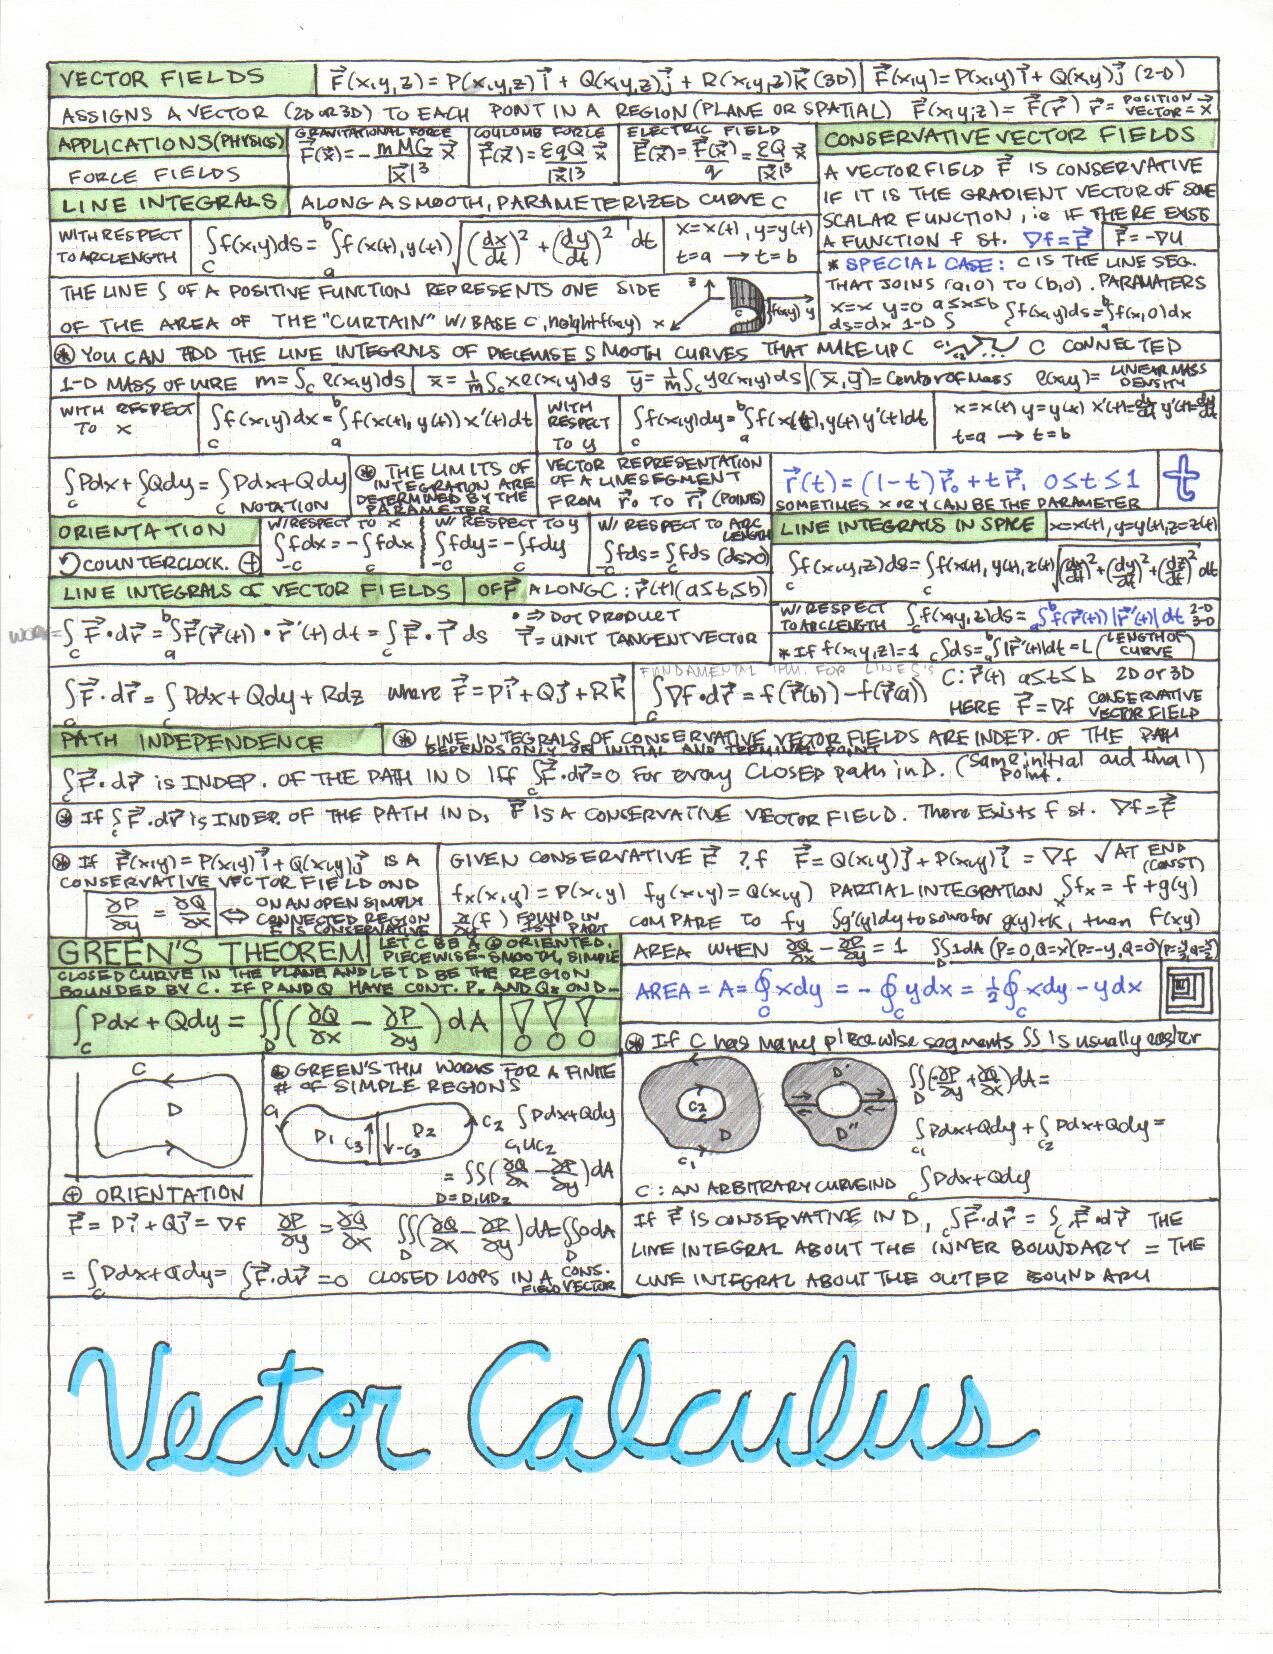 VECTOR FIELDS F⃗(x,y,z) = P(x,y,z)i⃗ + Q(x,y,z)j⃗ + R(x,y,z)k⃗ (3D) F⃗(x,y) = P(x,y)i⃗ + Q(x,y)j⃗ (2-D)
ASSIGNS A VECTOR (2D OR 3D) TO EACH POINT IN A REGION (PLANE OR SPATIAL) F⃗(x,y,z) = F⃗(r⃗) r⃗ = POSITION VECTOR = x⃗
APPLICATIONS (PHYSICS)
FORCE FIELDS
GRAVITATIONAL FORCE
F⃗(x⃗) = -mMG/|x⃗|³ x⃗
COULOMB FORCE
F⃗(x⃗) = εqQ/|x⃗|³ x⃗
ELECTRIC FIELD
E⃗(x⃗) = F⃗(x⃗)/q = εQ/|x⃗|³ x⃗
CONSERVATIVE VECTOR FIELDS
A VECTOR FIELD F⃗ IS CONSERVATIVE
IF IT IS THE GRADIENT VECTOR OF SOME
SCALAR FUNCTION, ie IF THERE EXISTS
A FUNCTION f st. ∇f = F⃗ F⃗ = -∇U
* SPECIAL CASE: C IS THE LINE SEG.
THAT JOINS (a,0) TO (b,0). PARAMATERS
x=x y=0 a≤x≤b ∫_C f(x,y)ds = ∫_a^b f(x,0)dx
ds=dx 1-D ∫
LINE INTEGRALS ALONG A SMOOTH, PARAMETERIZED CURVE C
WITH RESPECT
TO ARCLENGTH
∫_C f(x,y)ds = ∫_a^b f(x(t), y(t)) √((dx/dt)² + (dy/dt)²) dt
x=x(t), y=y(t)
t=a → t=b
THE LINE ∫ OF A POSITIVE FUNCTION REPRESENTS ONE SIDE
OF THE AREA OF THE "CURTAIN" W/ BASE C, height f(x,y)
z x y C f(x,y)
⊛ YOU CAN ADD THE LINE INTEGRALS OF PIECEWISE SMOOTH CURVES THAT MAKE UP C C₁ C₂ C CONNECTED
1-D MASS OF WIRE m = ∫_C ρ(x,y)ds x̄ = 1/m ∫_C xρ(x,y)ds ȳ = 1/m ∫_C yρ(x,y)ds (x̄, ȳ) = Center of Mass ρ(x,y) = LINEAR MASS DENSITY
WITH RESPECT
TO x
∫_C f(x,y)dx = ∫_a^b f(x(t), y(t)) x'(t)dt
WITH
RESPECT
TO y
∫_C f(x,y)dy = ∫_a^b f(x(t), y(t)) y'(t)dt
x=x(t) y=y(t) x'(t)=dx/dt y'(t)=dy/dt
t=a → t=b
∫_C Pdx + ∫_C Qdy = ∫_C Pdx + Qdy
NOTATION
⊛ THE LIMITS OF
INTEGRATION ARE
DETERMINED BY THE
PARAMETER
VECTOR REPRESENTATION
OF A LINE SEGMENT
FROM r⃗₀ TO r⃗₁ (POINTS)
r⃗(t) = (1-t)r⃗₀ + t r⃗₁ 0≤t≤1
SOMETIMES X OR Y CAN BE THE PARAMETER
t
ORIENTATION
COUNTERCLOCK. ⊕
W/RESPECT TO x
∫_-C fdx = -∫_C fdx
W/ RESPECT TO y
∫_-C fdy = -∫_C fdy
W/ RESPECT TO ARC LENGTH
∫_-C fds = ∫_C fds (ds>0)
LINE INTEGRALS IN SPACE x=x(t), y=y(t), z=z(t)
∫_C f(x,y,z)ds = ∫f(x(t), y(t), z(t))√((dx/dt)² + (dy/dt)² + (dz/dt)²) dt
W/ RESPECT
TO ARCLENGTH
∫_C f(x,y,z)ds = ∫_a^b f(r⃗(t)) |r⃗'(t)| dt 2-D 3-D
* If f(x,y,z)=1 ∫_C ds = ∫_a^b |r⃗'(t)|dt = L (LENGTH OF CURVE)
LINE INTEGRALS OF VECTOR FIELDS OF F⃗ ALONG C: r⃗(t) (a≤t≤b)
WORK = ∫_C F⃗·dr⃗ = ∫_a^b F⃗(r⃗(t)) · r⃗'(t) dt = ∫_C F⃗·T⃗ ds
• ⇒ DOT PRODUCT
T⃗ = UNIT TANGENT VECTOR
∫_C F⃗·dr⃗ = ∫_C Pdx + Qdy + Rdz where F⃗ = Pi⃗ + Qj⃗ + Rk⃗
FUNDAMENTAL THM. FOR LINE ∫'S
∫_C ∇f·dr⃗ = f(r⃗(b)) - f(r⃗(a))
C: r⃗(t) a≤t≤b 2D OR 3D
HERE F⃗ = ∇f CONSERVATIVE VECTOR FIELD
PATH INDEPENDENCE ⊛ LINE INTEGRALS OF CONSERVATIVE VECTOR FIELDS ARE INDEP. OF THE PATH
DEPENDS ONLY ON INITIAL AND TERMINAL POINT
∫_C F⃗·dr⃗ is INDEP. OF THE PATH IN D Iff ∫_C F⃗·dr⃗=0 For every CLOSED path in D. (same initial and final point.)
⊛ If ∫_C F⃗·dr⃗ is INDEP. OF THE PATH IN D, F⃗ IS A CONSERVATIVE VECTOR FIELD. There Exists f st. ∇f = F⃗
⊛ If F⃗(x,y) = P(x,y)i⃗ + Q(x,y)j⃗ IS A
CONSERVATIVE VECTOR FIELD ON D
∂P/∂y = ∂Q/∂x ⟺
ON AN OPEN SIMPLY
CONNECTED REGION
F⃗ IS CONSERVATIVE
GIVEN CONSERVATIVE F⃗ ? f F⃗ = Q(x,y)j⃗ + P(x,y)i⃗ = ∇f √ AT END (CONST)
f_x(x,y) = P(x,y) f_y(x,y) = Q(x,y) PARTIAL INTEGRATION ∫_x f_x = f + g(y)
∂/∂y(f) FOUND IN 1ST PART COMPARE TO f_y ∫g'(y)dy to solve for g(y)+k, then f(x,y)
GREEN'S THEOREM LET C BE A ⊕ ORIENTED,
PIECEWISE-SMOOTH, SIMPLE
CLOSED CURVE IN THE PLANE AND LET D BE THE REGION
BOUNDED BY C. IF P AND Q HAVE CONT. Pₓ AND Qₓ ON D -
∫_C Pdx + Qdy = ∬_D (∂Q/∂x - ∂P/∂y) dA !!!
AREA WHEN ∂Q/∂x - ∂P/∂y = 1 ∬_D 1dA (P=0, Q=x) (P=-y, Q=0) (P=-y/2, Q=x/2)
AREA = A = ∮_C xdy = -∮_C ydx = ½∮_C xdy - ydx
⊛ If C has many piecewise segments ∬ is usually easier
C
D
⊕ ORIENTATION
⊛ GREEN'S THM WORKS FOR A FINITE
# OF SIMPLE REGION'S
C₁ D₁ C₃ -C₃ D₂ C₂ ∫_C₁∪C₂ Pdx+Qdy
= ∬_D=D₁∪D₂ (∂Q/∂x - ∂P/∂y)dA
C₂ D C₁
D' D''
∬_D (-∂P/∂y + ∂Q/∂x)dA =
∫_C₁ Pdx+Qdy + ∫_C₂ Pdx+Qdy =
C: AN ARBITRARY CURVE IN D ∫_C Pdx+Qdy
F⃗ = Pi⃗ + Qj⃗ = ∇f ∂P/∂y = ∂Q/∂x ∬_D (∂Q/∂x - ∂P/∂y)dA = ∬_D 0dA
= ∫_C Pdx+Qdy = ∫_C F⃗·dr⃗ = 0 CLOSED LOOPS IN A CONS. VECTOR FIELD
If F⃗ IS CONSERVATIVE IN D, ∫_C F⃗·dr⃗ = ∫_C F⃗·dr⃗ THE
LINE INTEGRAL ABOUT THE INNER BOUNDARY = THE
LINE INTEGRAL ABOUT THE OUTER BOUNDARY
Vector Calculus